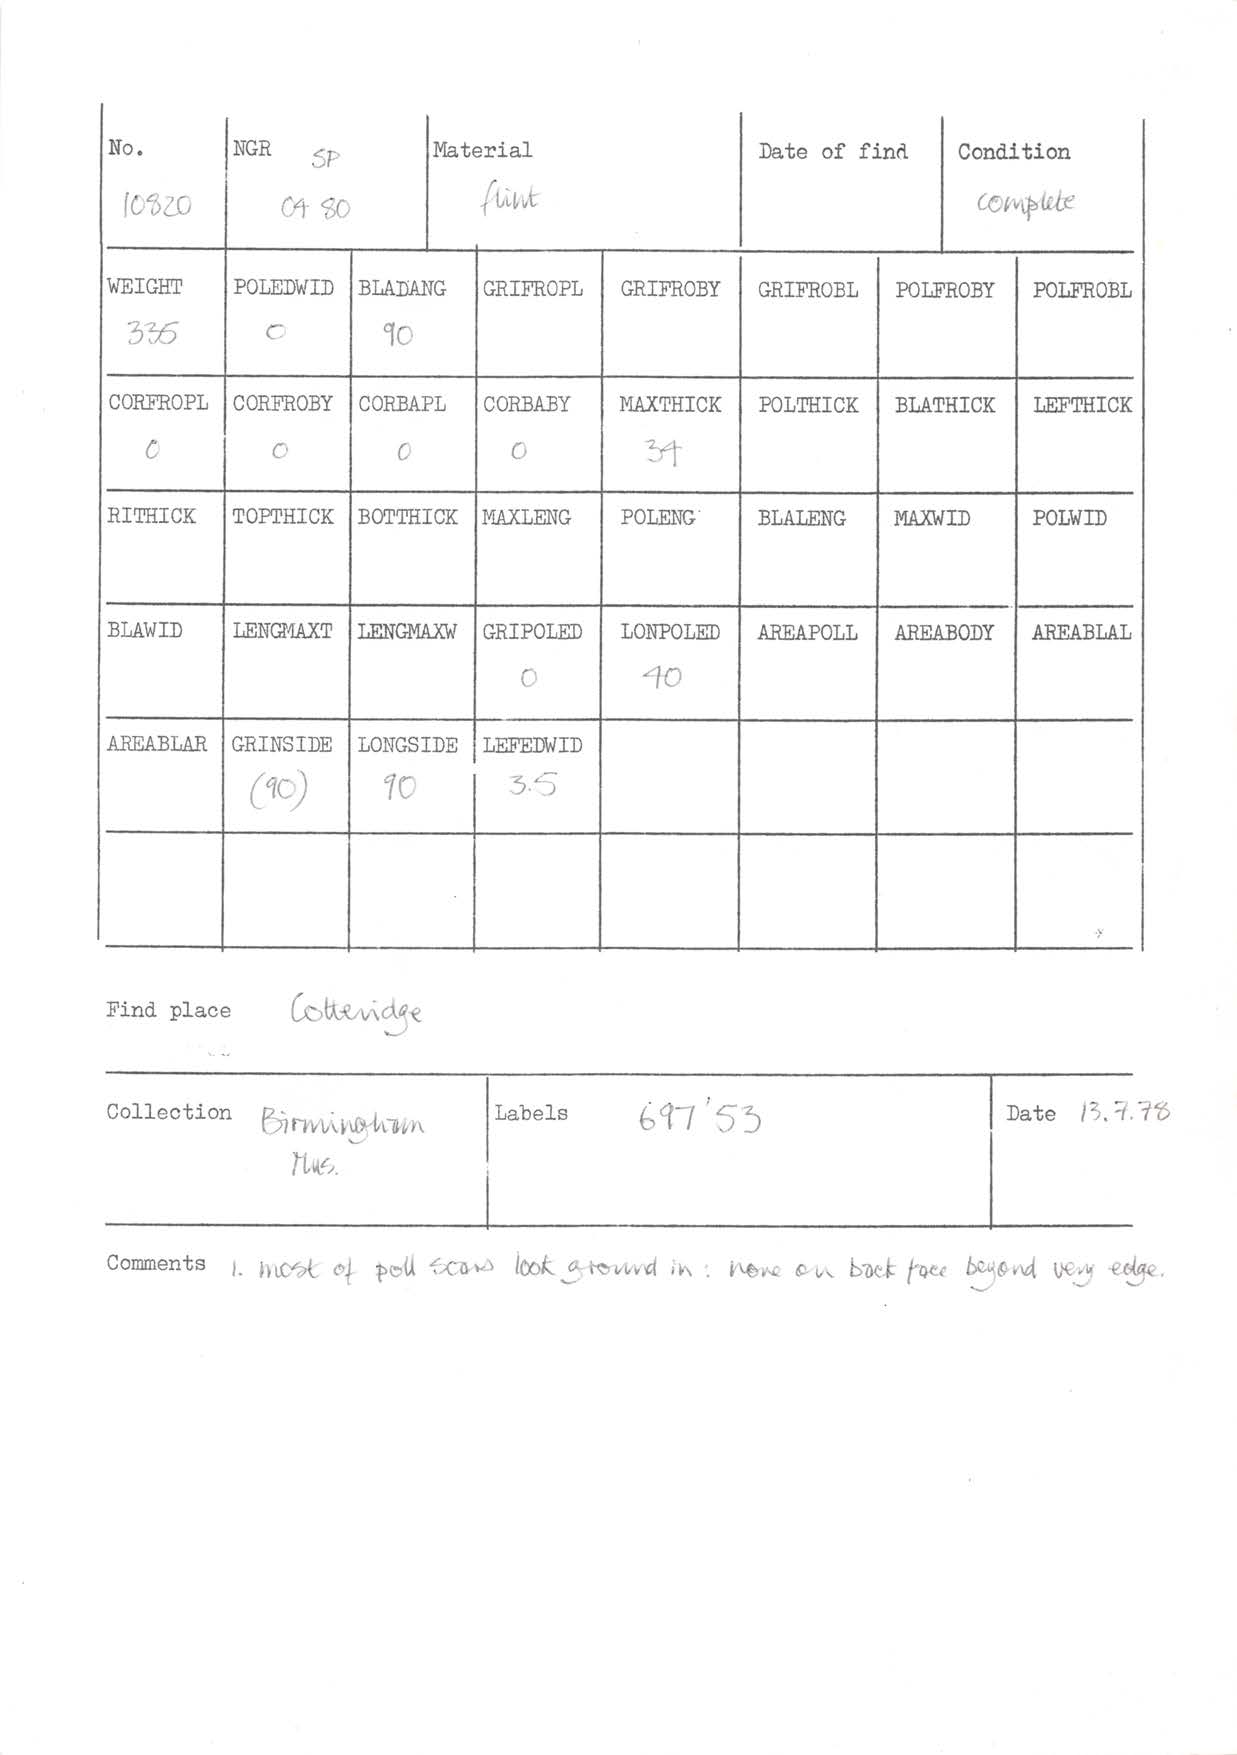 No. NGR SP Material Date of find Condition
10820 04 80 flint complete
WEIGHT POLEDWID BLADANG GRIFROPL GRIFROBY GRIFROBL POLFROBY POLFROBL
0 90
CORFROPL CORFROBY CORBAPL CORBABY MAXTHICK POLTHICK BLATHICK LEFTHICK
0 0 0 0 34
RITHICK TOPTHICK BOTTHICK MAXLENG POLENG BLALENG MAXWID POLWID
BLAWID LENGMAXT LENGMAXW GRIPOLED LONPOLED AREAPOLL AREABODY AREABLAL
0 40
AREABLAR GRINSIDE LONGSIDE LEFEDWID
(90) 90 3.5
Find place Cotteridge
Collection Birmingham Labels 697'53 Date 13.7.78
Mus.
Comments 1. most of poll scars look ground in : none on back face beyond very edge.